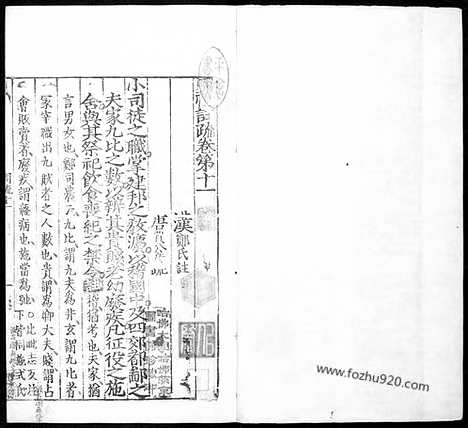 禮註疏卷第十一
漢鄭氏註
唐賈公彥疏
小司徒之職掌建邦之教灋以稽國中及四郊都鄙之
夫家九比之數以辨其貴賤老幼廢疾凡征役之施
舍與其祭祀飲食喪紀之禁令稽猶考也夫家猶
言男女也鄭司農云九比謂九夫為井玄謂九比者
冢宰職出九賦者之人數也貴謂為卿大夫賤謂占
會販賣者廢疾謂癃病也施當為弛
www.fozhu920.com